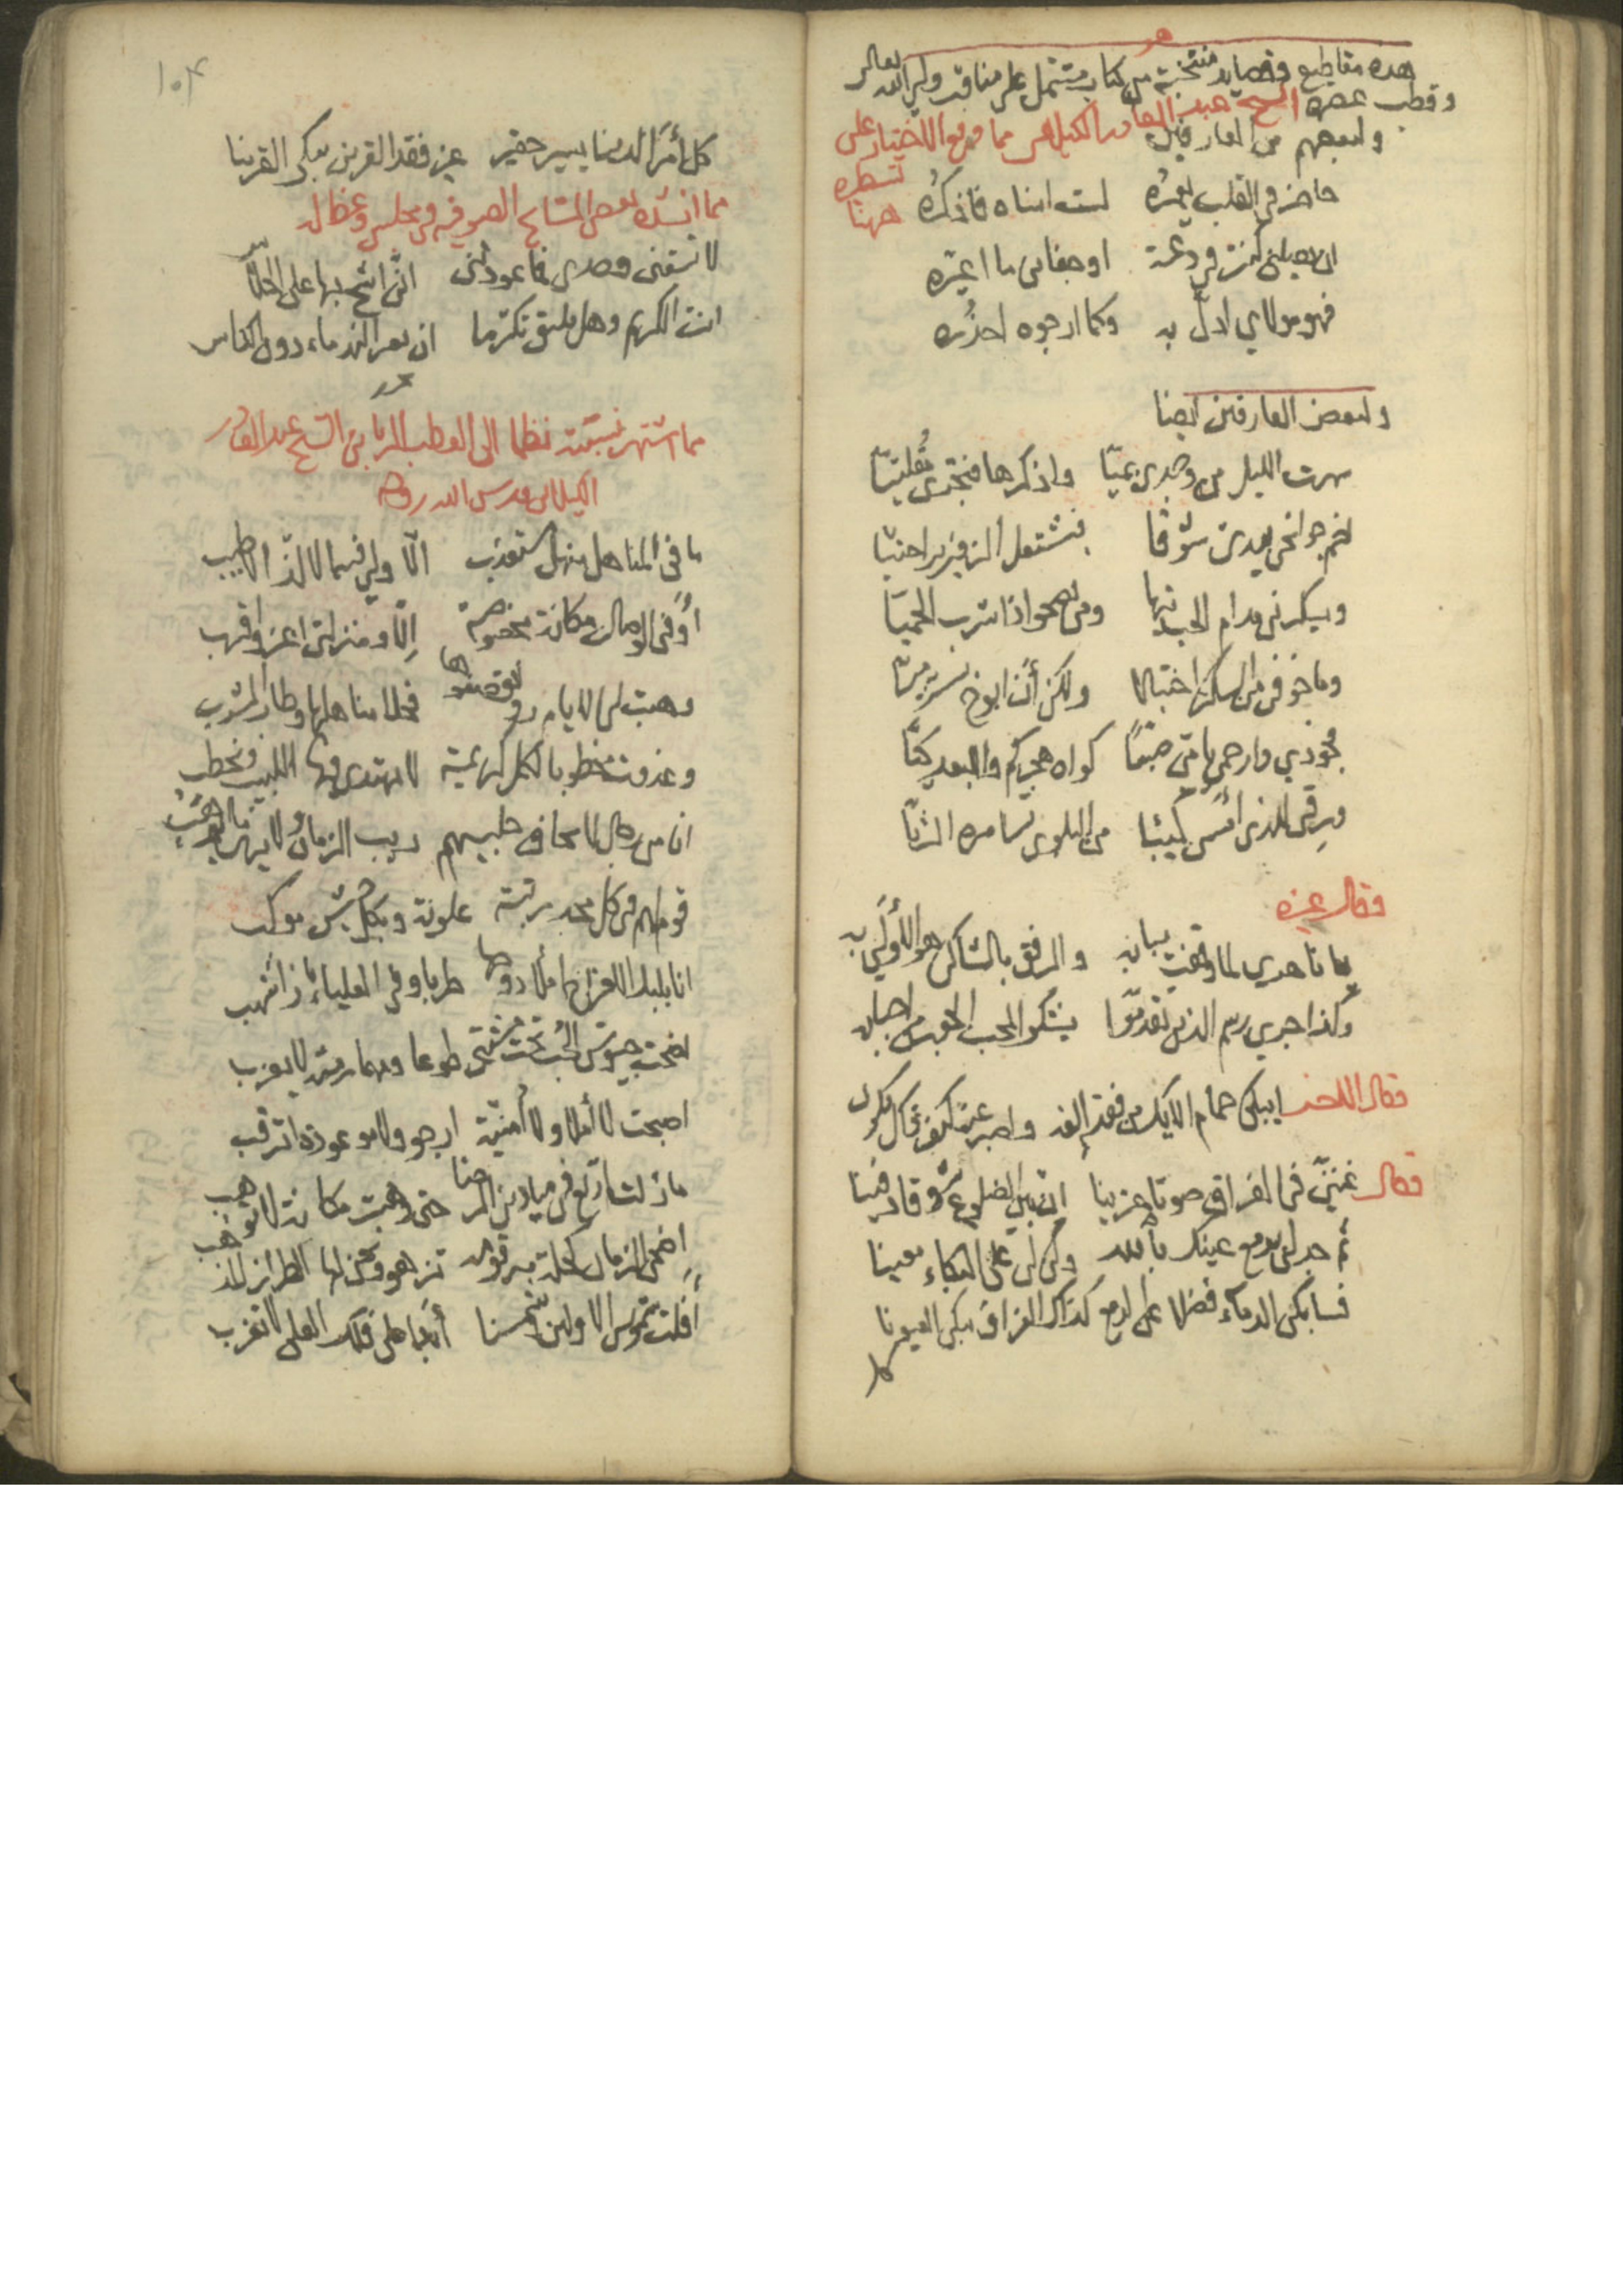 هذه مقاطيع وقصايد منتخبة من كتاب مشتمل على مناقب ولي الله تعالى
وقطب عصره الشيخ عبد القادر الكيلاني مما وقع الاختيار على
تسطره
ههنا
ولبعضهم من العارفين
حاضر في القلب يعمره لست انساه فاذكره
ان وصلني كنت في دعة او جفاني ما اغيره
فهو مولاي ادل به وكما ارجوه احذره
ولبعض العارفين ايضا
سهرت الليل من وجدي بميا واذكرها فتجري مقلتيا
جوانحي بعدي شوقا فتشتعل الزفير
ويسكرني مدام الحب تيها ومن يصحو اذا شرب الحميا
وما خوفي من السكر اختبالا ولكن أن ابوح بسر ميا
فجودي وارحمي يا مي صبا كواه هجركم والبعد كيا
ورقي للذي أمسى كئيبا من البلوى تسامره الثريا
وقال غيره
يا تاهدي لما وقفت ببابه والرفق بالشاكي هو الأولى به
وكذا جرى رسم الذين تقدموا يشكو المحب الحب من احبابه
فقال اللاخر ايبكي حمام الايك من فقد الفه واصبر عنه كيف ذاك يكون
فقال غنني في الفراق صوتا حزينا ان بين الضلوع شوقا دفينا
ثم جد لي بدمع عينك بالله وكن لي على البكاء معينا
فسابكي الدماء فضلا على الدمع كذاك الفراق يبكي العيونا
١٠٤
كل أمر الدنيا يسير حقير غير فقد القرين يبكي القرينا
مما انشده بعض المشايخ الصوفيه في مجلس وعظ له
لا تسقني وحدي فما عودتني اني اشح بها على الجلاس
انت الكريم وهل يليق تكرما ان يعبر الندماء دون الكاس
مما اشتهر نسبته نظما الى القطب الرباني الشيخ عبد القادر
الكيلاني قدس الله روحه
ما في المناهل منهل مستعذب الا ولي فيه الالذ الاطيب
أو في الوصال مكانة مخصوصة إلا ومنزلتي اعز واقرب
وهبت لي الايام رونق صفوها فحلا مناهلها وطاب المشرب
وغدوت مخطوبا لكل كريمة لا يهتدي فيها اللبيب فيخطب
انا من رجال لا يخاف جليسهم ريب الزمان ولا يرى ما يرهب
قوم لهم في كل مجد رتبة علوية وبكل جيش موكب
انا بلبل الافراح املا دوحها طربا وفي العلياء باز اشهب
اضحت جيوش الحب تحت مشيتي طوعا ومهما رمته لا يعزب
اصبحت لا أملا ولا أمنية ارجو ولا موعودة اترقب
ما زلت ارتع في ميادين الرضا حتى وهبت مكانة لا توهب
اضحى الزمان كحلة مرقومة تزهو ونحن لها الطراز المذهب
أفلت شموس الاولين وشمسنا أبدا على فلك العلى لا تغرب